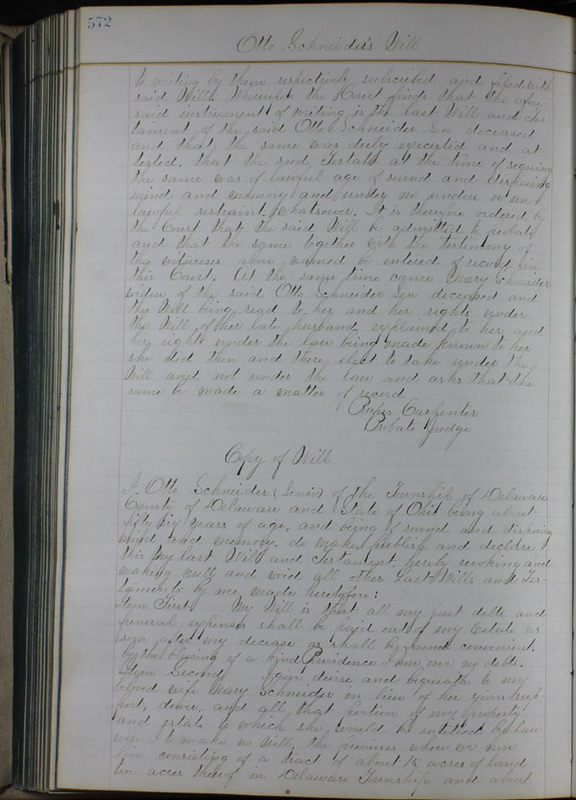 572
Otto Schneider's Will
to writing by them respectively subscribed and filed with
said Will. Whereas the Court finds that the afore
said instrument of writing is the last Will and Tes
tament of the said Otto Schneider Sen deceased
and that the same was duly executed and at
tested, that the said Testator at the time of signing
the same was of lawful age of sound and disposing
mind and memory and under no undue or un
lawful restraint whatsoever. It is therefore ordered by
the Court that the said Will be admitted to probate
and that the same together with the testimony of
the witnesses above named be entered of record in
this Court. At the same time came Mary Schneider
widow of the said Otto Schneider Sen deceased and
the Will being read to her and her rights under
the Will of her late husband explained to her and
her rights under the law being made known to her
she did then and there elect to take under the
Will and not under the law and asks that the
same be made a matter of record
Carpenter
Probate Judge
Copy of Will
I Otto Schneider (Senior) of the Township of Delaware
County of Delaware and State of Ohio being about
fifty six years of age, and being of sound and disposing
mind and memory, do make, publish and declare
this my last Will and Testament hereby revoking and
making null and void all other Last Wills and Tes-
taments by me made heretofore:
Item First My Will is that all my just debts and
funeral expenses shall be paid out of my Estate as
soon after my decease as shall be found convenient.
By the blessing of a kind Providence I now owe no debts.
Item Second I give devise and bequeath to my
beloved wife Mary Schneider in lieu of her years sup
port, dower, and all that portion of my property
and estate to which she would be entitled by law
were I to make no Will, the premises where we now
live consisting of a tract of about 15 acres of land
ten acres thereof in Delaware Township and about